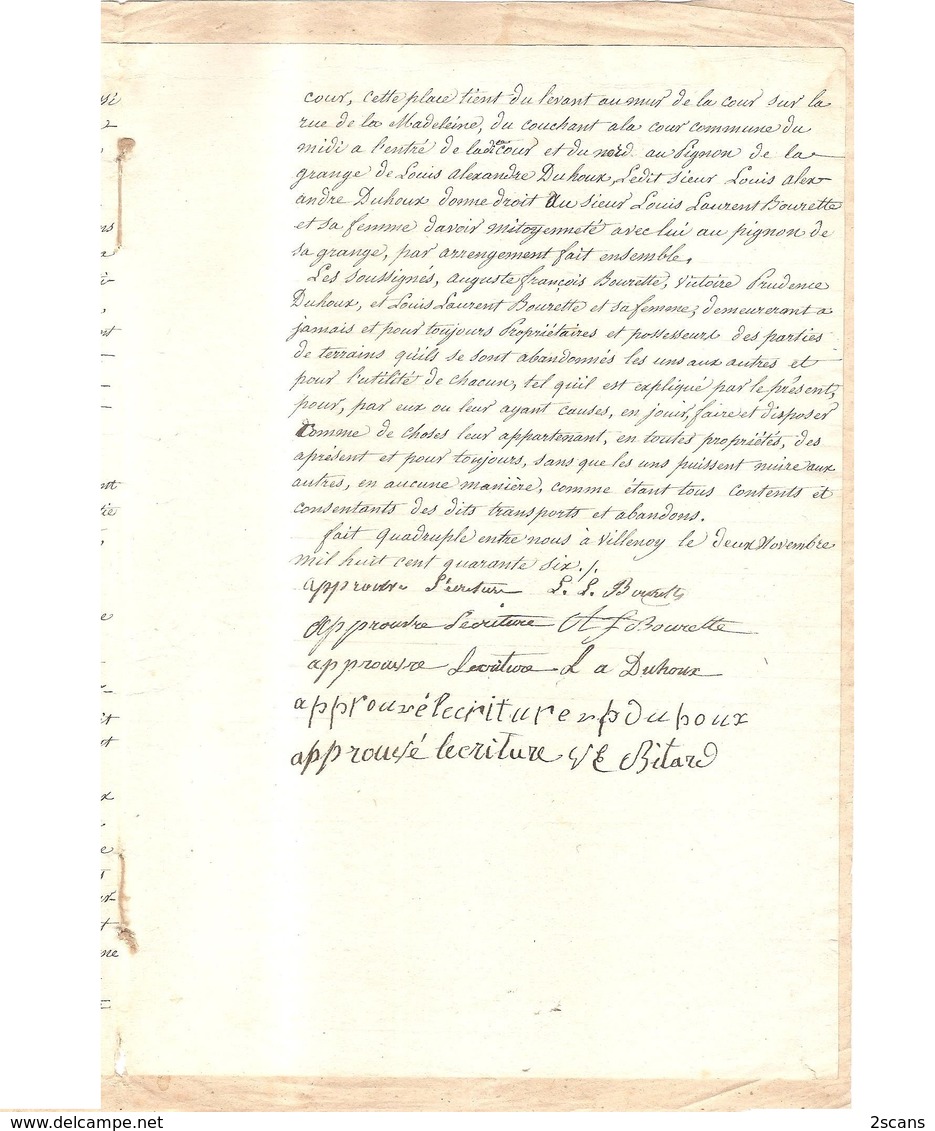 cour, cette place tient du levant au mur de la cour sur la
rue de la Madeleine, du couchant ala cour commune du
midi a l'entré de ladite cour et du nord au Pignon de la
grange de Louis Alexandre Duhoux, Ledit sieur Louis Alex
andre Duhoux donne droit Au sieur Louis Laurent Bourette
et sa femme davoir mitoyenneté avec lui au pignon de
sa grange, par arrengement fait ensemble.
Les soussignés, auguste françois Bourette, Victoire Prudence
Duhoux, et Louis Laurent Bourette et sa femme, demeureront a
jamais et pour toujours Propriétaires et possesseurs des parties
de terrains qu'ils se sont abandonnés les uns aux autres et
pour l'utilité de chacun, tel qu'il est expliqué par le présent,
pour, par eux ou leur ayant causes, en jouir, faire et disposer
Comme de choses leur appartenant, en toutes propriétés, des
apresent et pour toujours, sans que les uns puissent nuire aux
autres, en aucune manière, comme étant tous contents et
consentants des dits transports et abandons.
fait quadruple entre nous à Villenoy le deux Novembre
mil huit cent quarante six./.
approuve l'écriture L. L. Bourette
approuvre l'ecriture A f Bourette
approuvre lecriture L a Duhoux
approuvé lecriture vp duhoux
approuvé lecriture VE Bitard
2scans